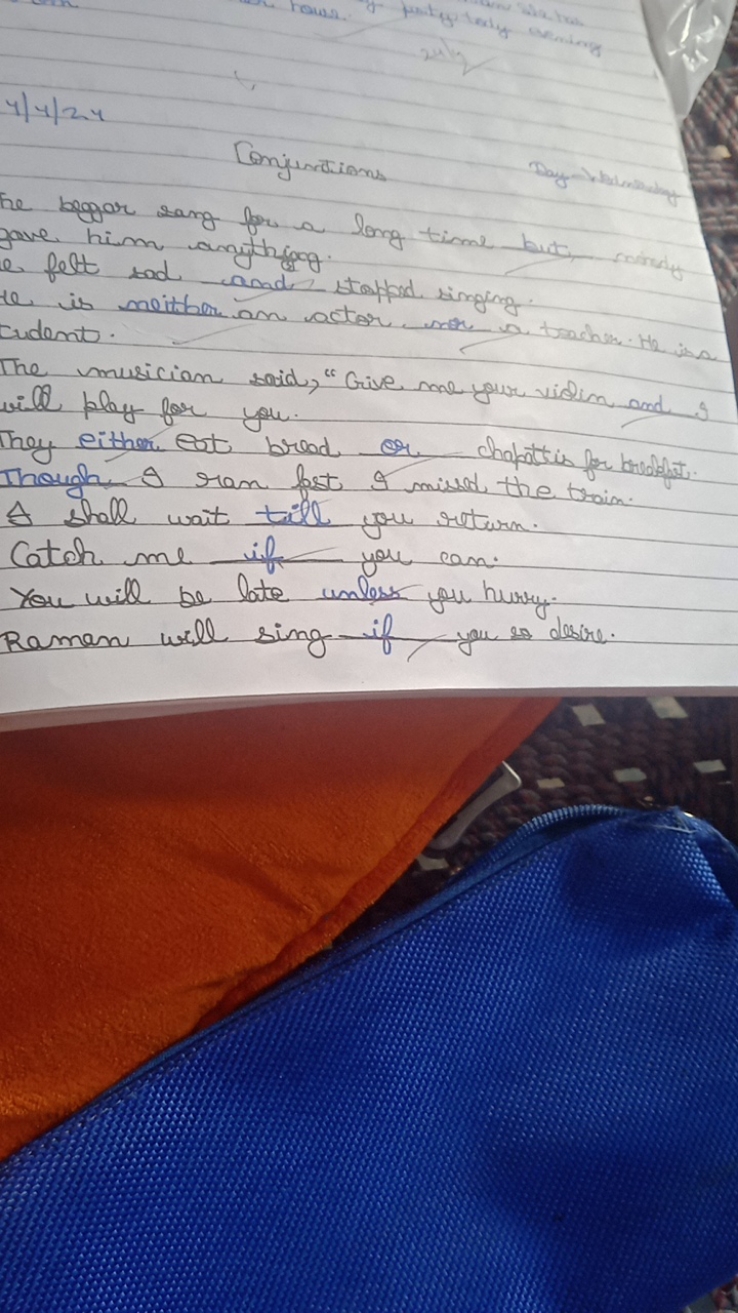 house. party today evening
4/4/24
Conjunctions
Day - Wednesday
he beggar sang for a long time but nobody
gave him anything.
e felt sad and stopped singing.
He is neither an actor nor a teacher. He is a
tudent.
The musician said, "Give me your violin and I
will play for you.
They either eat bread or chapattis for breakfast.
Though I ran fast I missed the train.
I shall wait till you return.
Catch me if you can.
You will be late unless you hurry.
Raman will sing if you so desire.